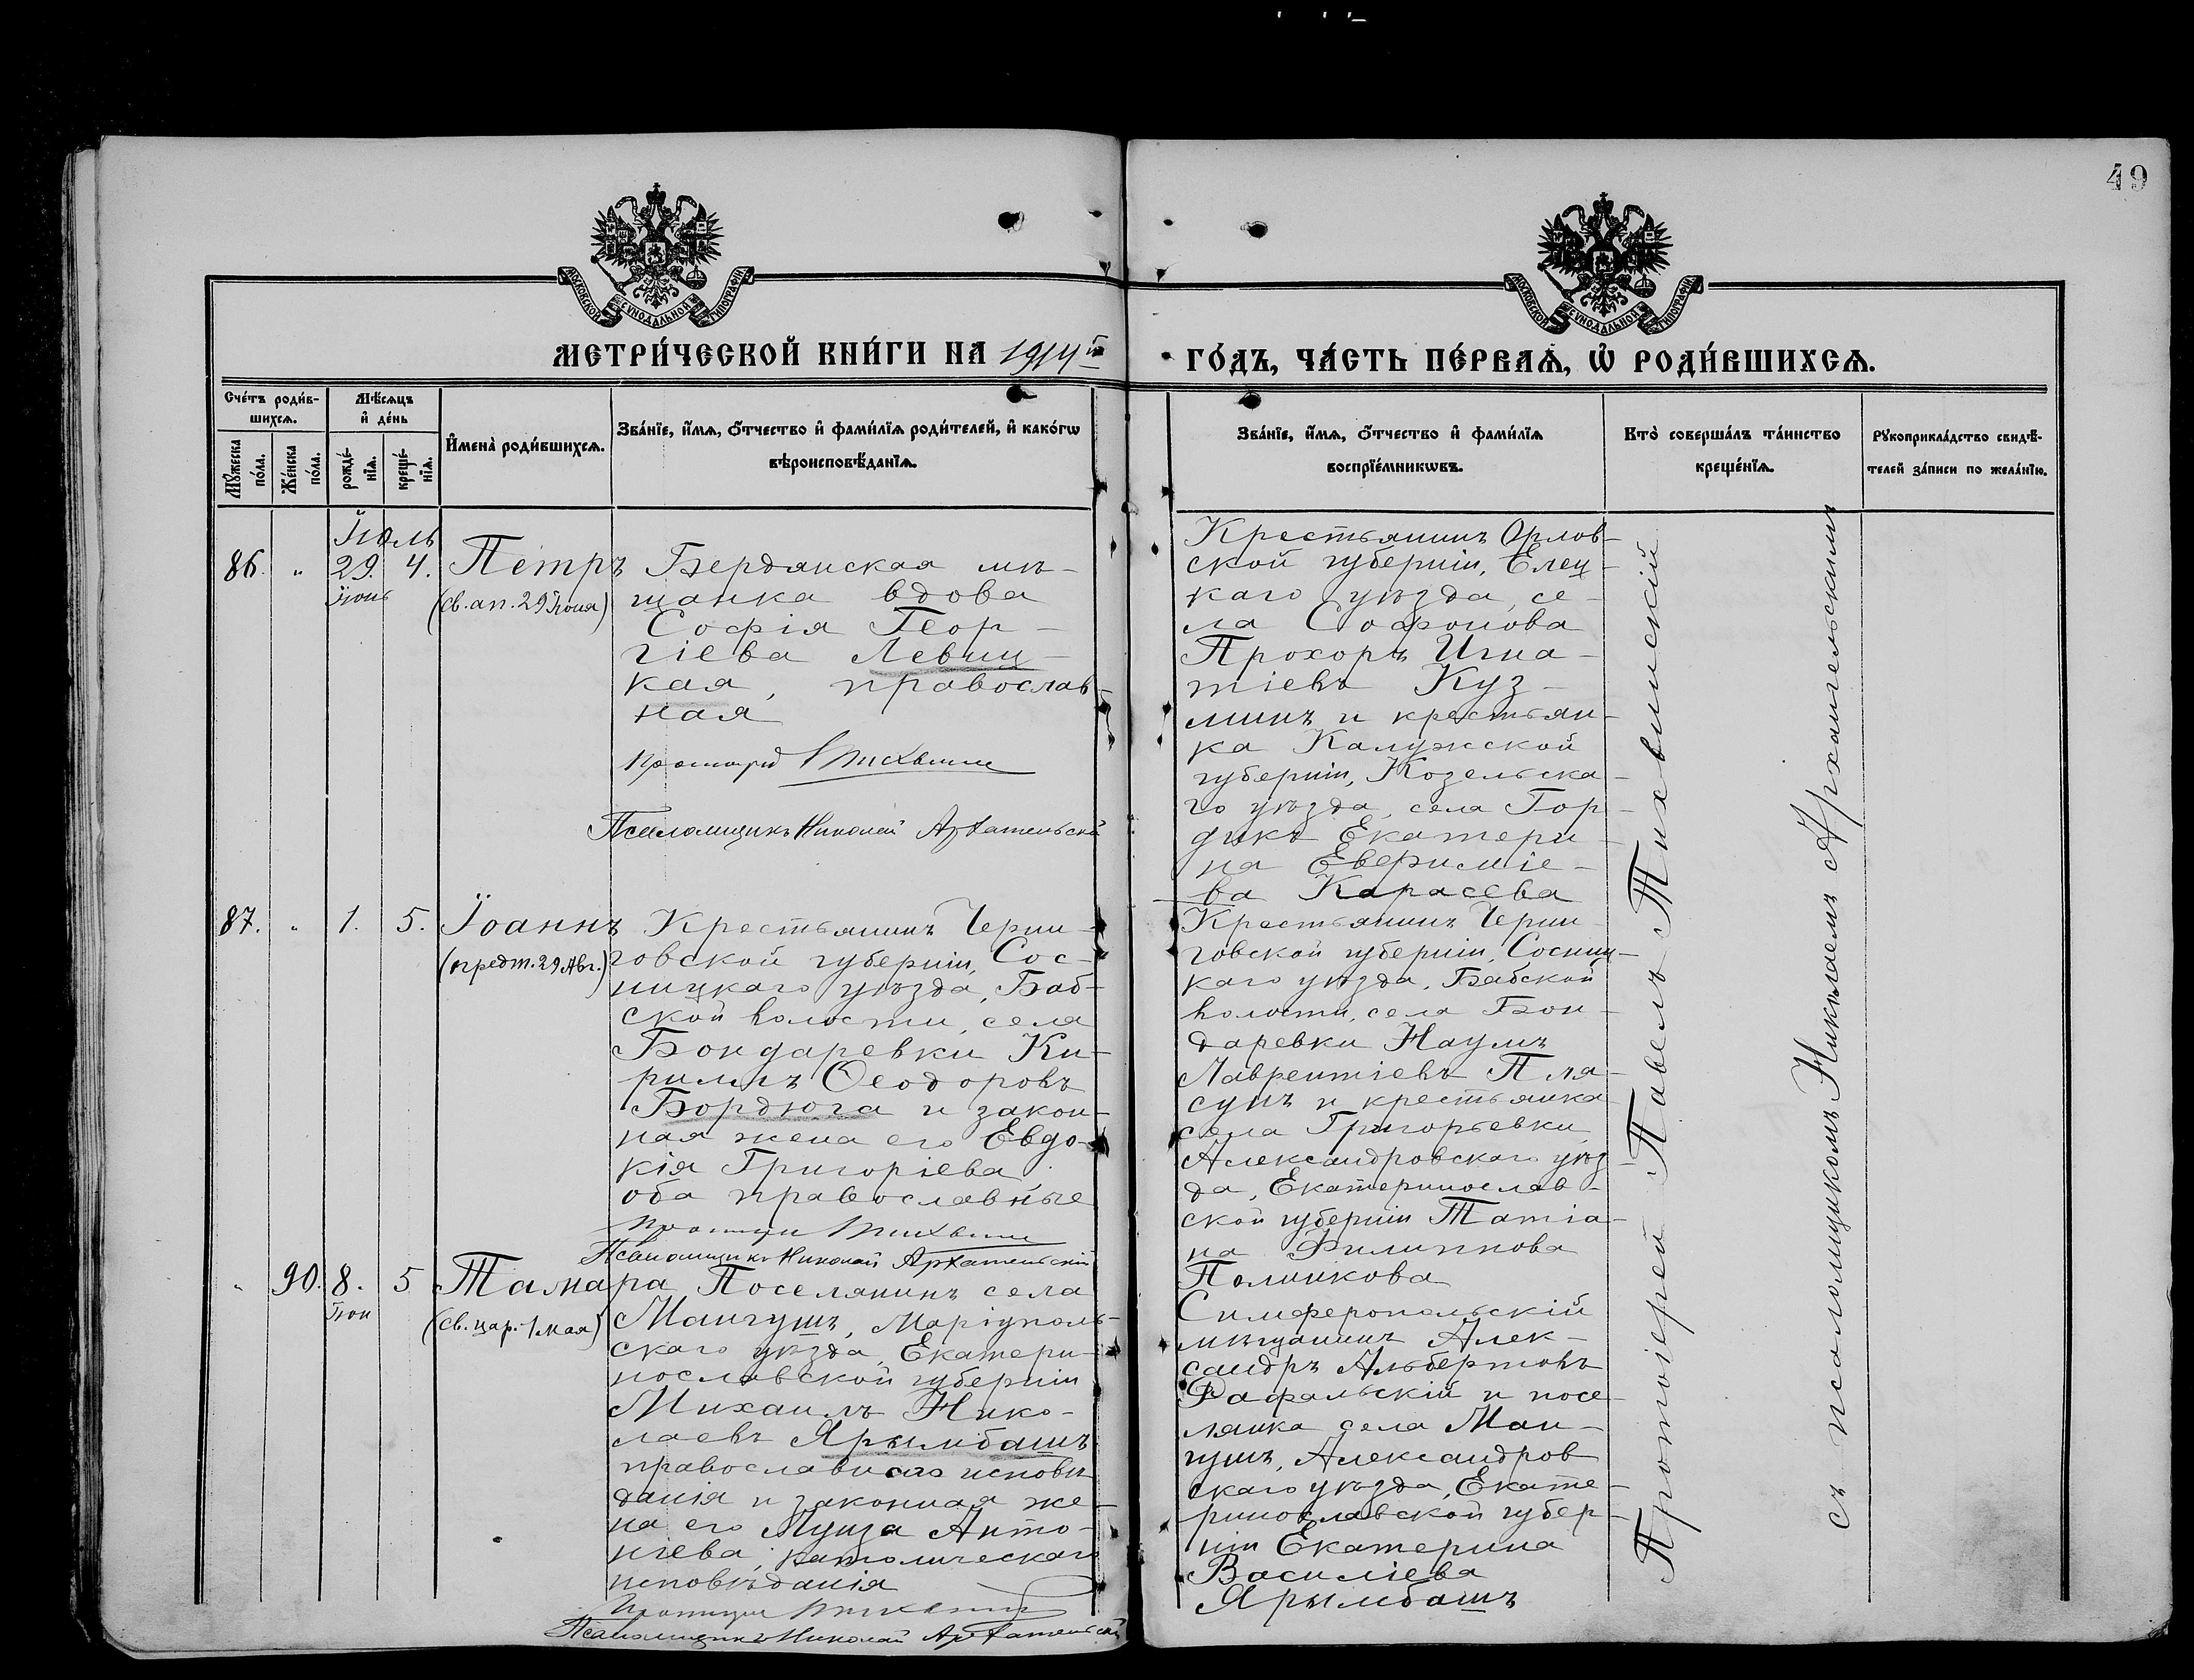 49
МОСКОВСКОЙ СУНОДАЛЬНОЙ ТИПОГРАФІИ
МОСКОВСКОЙ СУНОДАЛЬНОЙ ТИПОГРАФІИ
МЕТРИ́ЧЕСКОЙ КНИ́ГИ НА 1914й
ГО́ДЪ, ЧА́СТЬ ПЕ́РВАѦ, Ѡ҆ РОДИ́ВШИХСѦ.
Сче́тъ роди́в-
шихсѧ.
Мѣ́сѧцъ
и҆ де́нь
Мꙋ́жеска
по́ла.
Же́нска
по́ла.
рожде́-
нїѧ.
креще́-
нїѧ.
И҆мена̀ роди́вшихсѧ.
Зва́нїе, и҆́мѧ, ѻ҆́тчество и҆ фами́лїѧ роди́телей, и҆ како́гѡ
вѣроисповѣ́данїѧ.
Зва́нїе, и҆́мѧ, ѻ҆́тчество и҆ фами́лїѧ
воспрїе́мникѡвъ.
Кто̀ соверша́лъ та́инство
креще́нїѧ.
Рꙋкоприкла́дство свидѣ́-
телей за́писи по жела́нїю.
Іюль
86. " 29. 4. Петръ
Іюнь (св. ап. 29 Іюня)
Бердянская мѣ-
щанка вдова
Софія Геор-
гіева Левиц-
кая, православ-
ная
Протоіерей Тихвинскій
Псаломщикъ Николай Архангельскій
Крестьянинъ Орлов-
ской губерніи, Елец-
каго уѣзда, се-
ла Софонова
Прохоръ Игна-
тіевъ Куз-
минъ и крестьян-
ка Калужской
губерніи, Козельска-
го уѣзда, села Гор-
дикъ Екатери-
на Евфиміе-
ва Карасева
87. " 1. 5. Іоаннъ
(предт. 29 Авг.)
Крестьянинъ Черни-
говской губерніи, Сос-
ницкаго уѣзда, Баб-
ской волости, села
Бондаревки Ки-
риллъ Ѳеодоровъ
Бордюга и закон-
ная жена его Евдо-
кія Григоріева,
оба православные
Протоіерей Тихвинскій
Псаломщикъ Николай Архангельскій
Крестьянинъ Черни-
говской губерніи, Сосниц-
каго уѣзда, Бабской
волости, села Бон-
даревки Наумъ
Лаврентіевъ Пля-
сунъ и крестьянка
села Григорьевки,
Александровскаго уѣз-
да, Екатеринослав-
ской губерніи Татіа-
на Филиппова
Полникова
" 90. 8. 5 Тамара
Іюн (св. цар. 1 мая)
Поселянинъ села
Мангушъ, Маріуполь-
скаго уѣзда, Екатери-
нославской губерніи
Михаилъ Нико-
лаевъ Ярымбашъ
православнаго исповѣ-
данія и законная же-
на его Луиза Анто-
ніева, католическаго
исповѣданія
Протоіерей Тихвинскій
Псаломщикъ Николай Архангельскій
Симферопольскій
мѣщанинъ Алек-
сандръ Альбертовъ
Рафальскій и посе-
лянка села Ман-
гушъ, Александров
скаго уѣзда, Екате-
ринославской губер-
ніи Екатерина
Василіева
Ярымбашъ
Протоіерей Павелъ Тихвинскій
съ псаломщикомъ Николаемъ Архангельскимъ